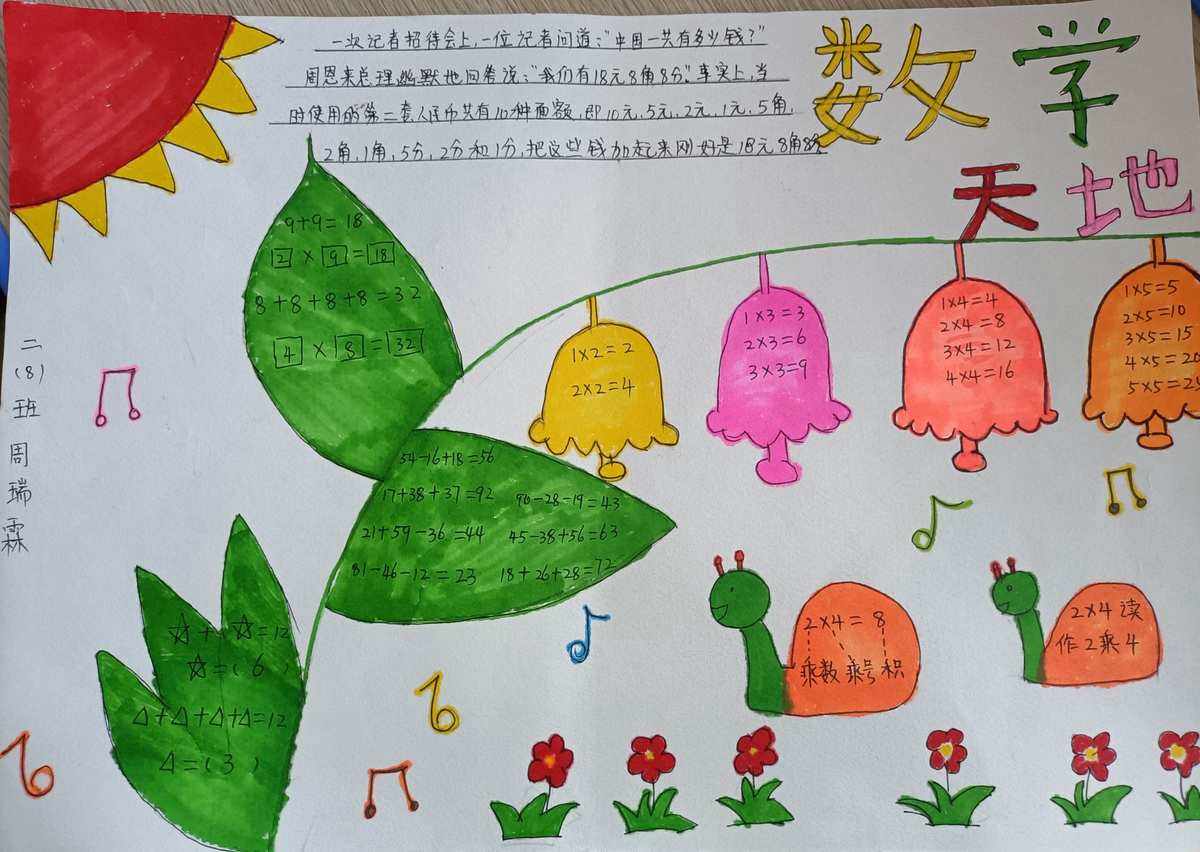 一次记者招待会上,一位记者问道:"中国一共有多少钱?"
周恩来总理幽默地回答说:"我们有18元8角8分"事实上,当
时使用的第二套人民币共有10种面额,即10元,5元,2元,1元,5角,
2角,1角,5分,2分和1分,把这些钱加起来刚好是18元8角8分
数学
天地
9+9=18
2×9=18
8+8+8+8=32
4×8=32
1×2=2
2×2=4
1×3=3
2×3=6
3×3=9
1×4=4
2×4=8
3×4=12
4×4=16
1×5=5
2×5=10
3×5=15
4×5=20
5×5=25
二(8)班 周瑞霖
54-16+18=56
17+38+37=92 90-28-19=43
21+59-36=44 45-38+56=63
81-46-12=23 18+26+28=72
☆+☆=12
☆=(6)
△+△+△+△=12
△=(3)
2×4=8
乘数 乘号 积
2×4读
作2乘4